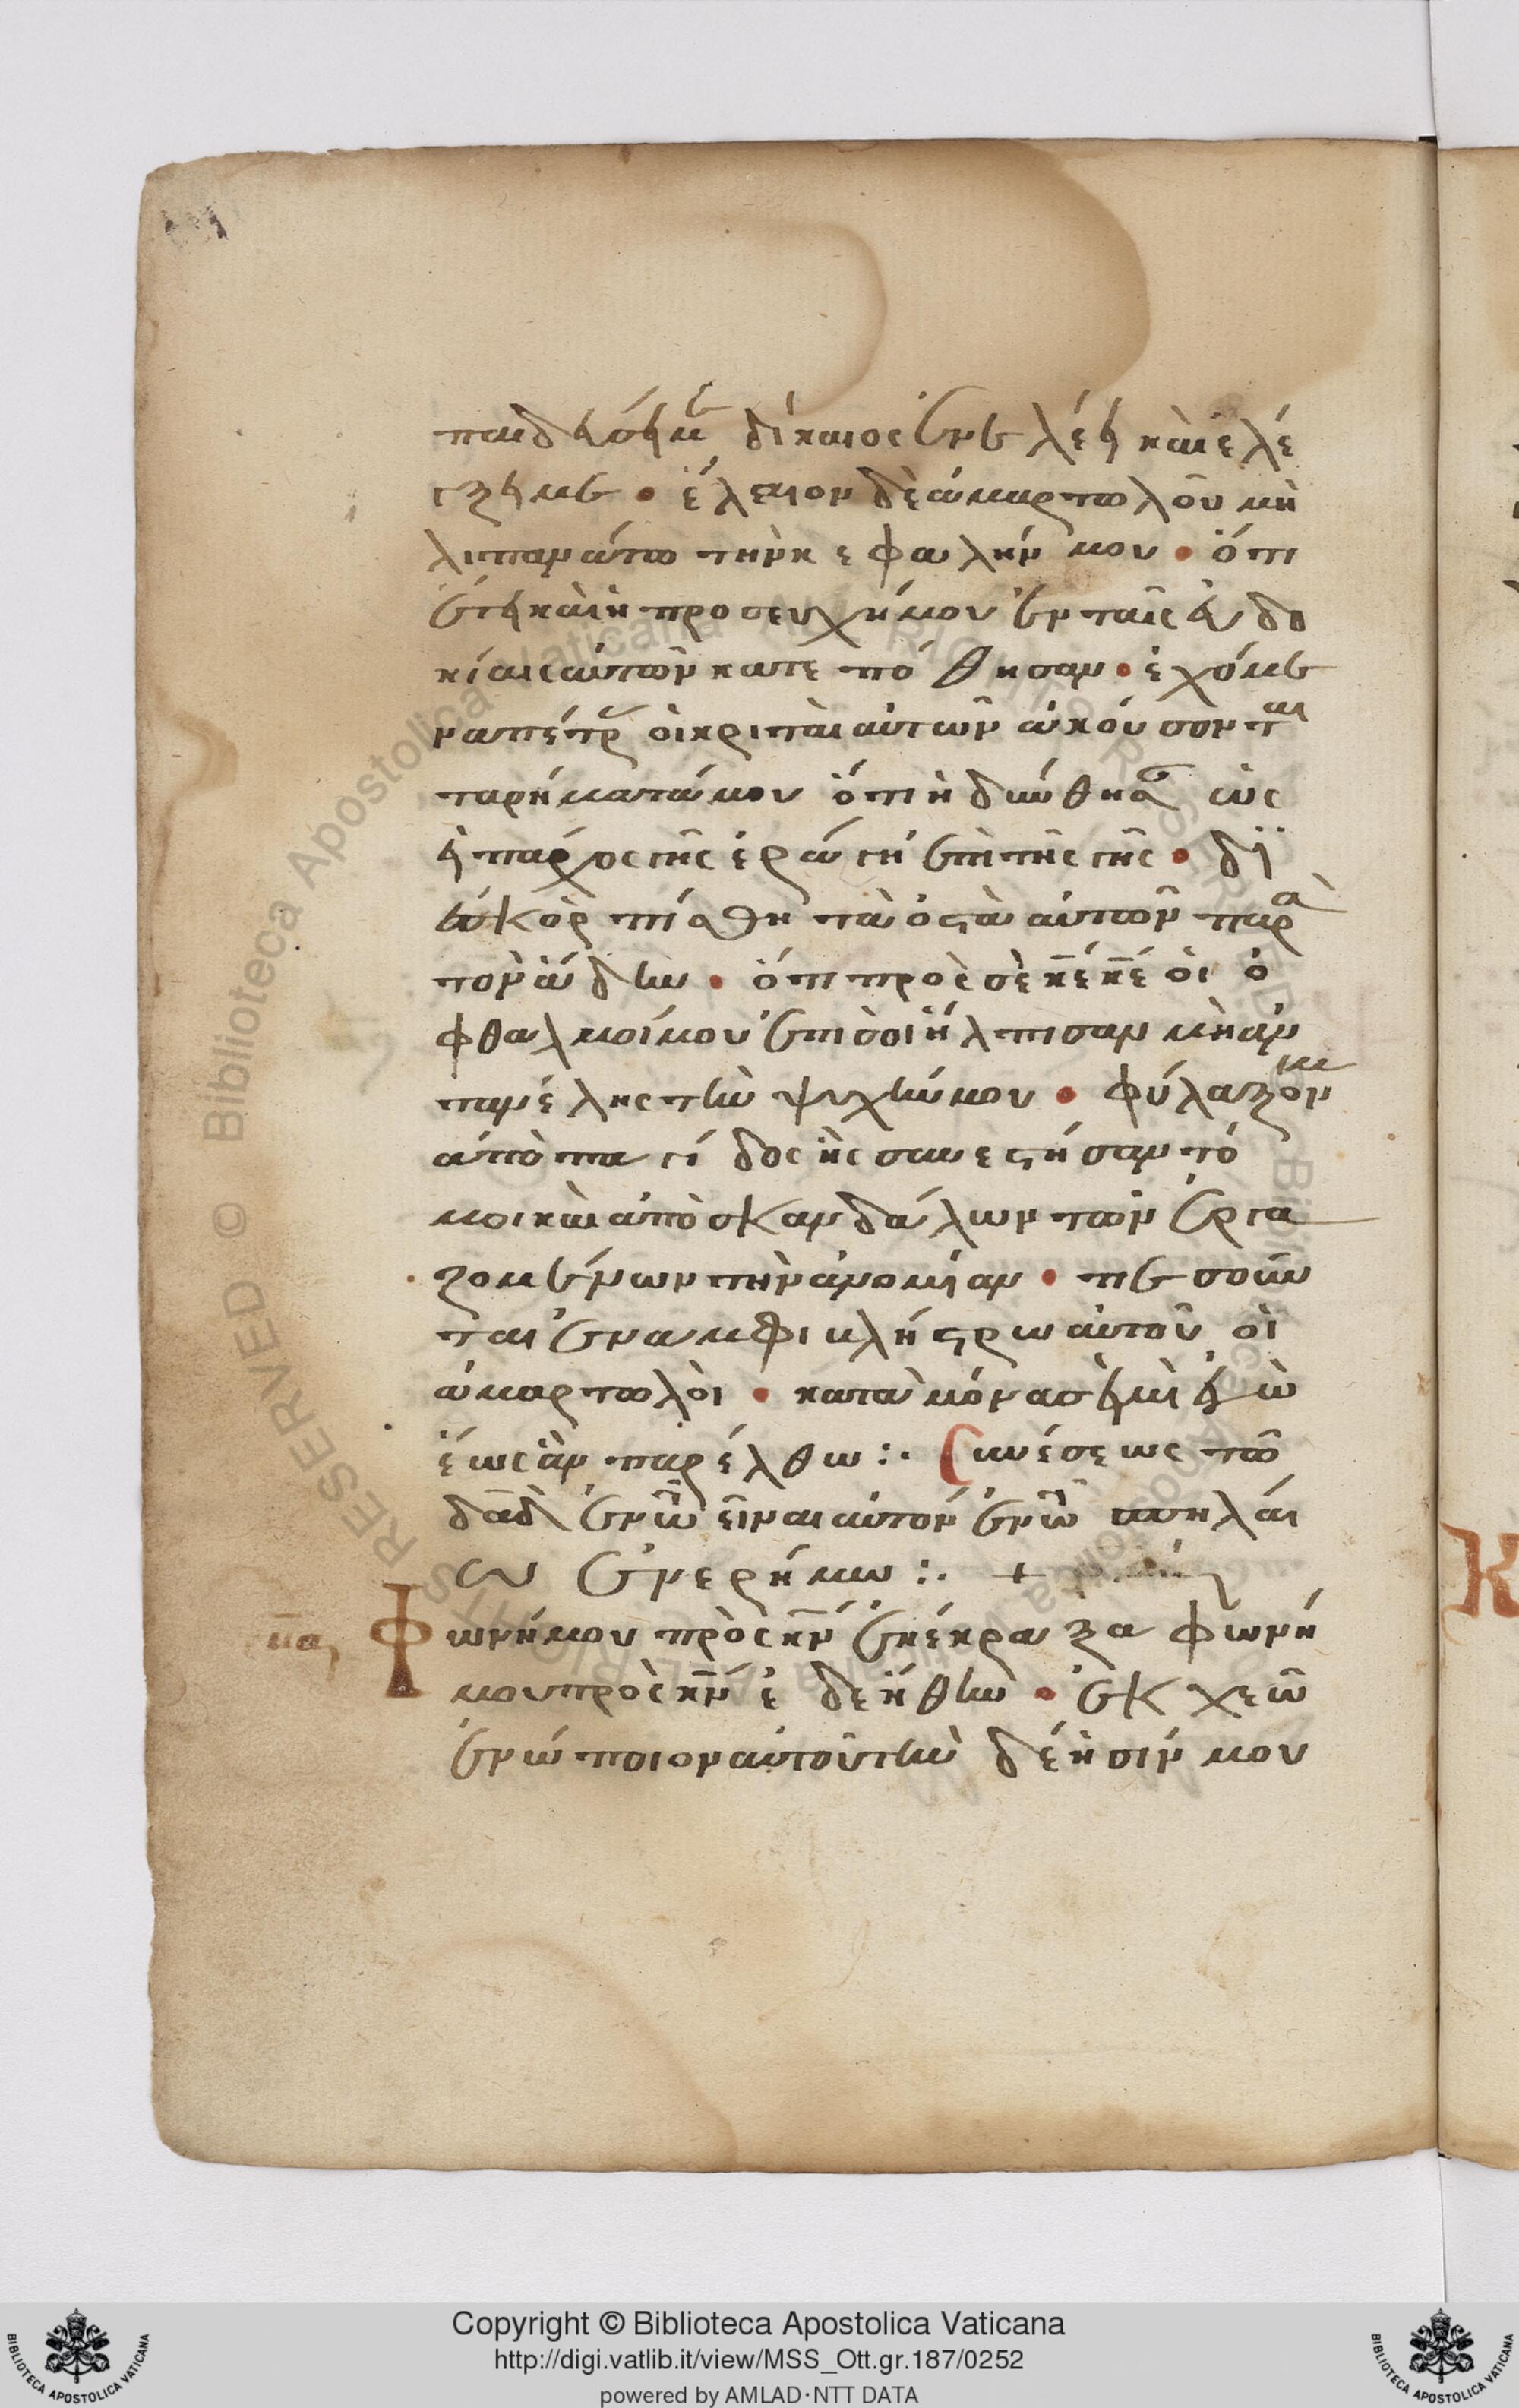 παιδεύσει με δίκαιος ἐν ἐλέει καὶ ἐλέ
γξει με · ἔλαιον δὲ ἁμαρτωλοῦ μὴ
λιπανάτω τὴν κεφαλήν μου · ὅτι
ἔτι καὶ ἡ προσευχή μου ἐν ταῖς εὐδο
κίαις αὐτῶν κατεπόθησαν · ἐχόμε
να πέτρας οἱ κριταὶ αὐτῶν ἀκούσονται
τα ρήματά μου ὅτι ἡδύνθησαν ὡς
εἰ πάχος γῆς ἐράγη ἐπὶ τῆς γῆς · δι
εσκορπίσθη τὰ ὀστᾶ αὐτῶν παρὰ
τὸν ἅδην · ὅτι πρὸς σὲ κε κε οἱ ὀ
φθαλμοί μου ἐπὶ σοὶ ἤλπισα μὴ ἀν
τανέλης τὴν ψυχήν μου · φύλαξόν με
ἀπὸ παγίδος ἧς συνεστήσαντό
μοι καὶ ἀπὸ σκανδάλων τῶν ἐργα
ζομένων τὴν ἀνομίαν · πεσοῦν
ται ἐν ἀμφιβλήστρω αὐτοῦ οἱ
ἁμαρτωλοὶ · κατὰ μόνας εἰμὶ ἐγὼ
ἕως ἂν παρέλθω :· Συνέσεως τῶ
δαδ ἐν τῶ εἶναι αὐτὸν ἐν τῶ σπηλαί
ω ἐν ερήμω :· +
ρμα Φωνῆ μου πρὸς κν ἐκέκραξα φωνῆ
μου πρὸς κν ἐδεήθην · ἐκχεῶ
ἐνώπιον αὐτοῦ τὴν δέησίν μου
Copyright © Biblioteca Apostolica Vaticana
http://digi.vatlib.it/view/MSS_Ott.gr.187/0252
powered by AMLAD·NTT DATA